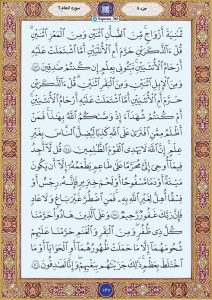 جزء ٨
سورة الانعام ٦
ثَمَٰنِيَةَ أَزۡوَٰجٖۖ مِّنَ ٱلضَّأۡنِ ٱثۡنَيۡنِ وَمِنَ ٱلۡمَعۡزِ ٱثۡنَيۡنِۗ
قُلۡ ءَآلذَّكَرَيۡنِ حَرَّمَ أَمِ ٱلۡأُنثَيَيۡنِ أَمَّا ٱشۡتَمَلَتۡ عَلَيۡهِ
أَرۡحَامُ ٱلۡأُنثَيَيۡنِۖ نَبِّـُٔونِي بِعِلۡمٍ إِن كُنتُمۡ صَٰدِقِينَ ١٤٣
وَمِنَ ٱلۡإِبِلِ ٱثۡنَيۡنِ وَمِنَ ٱلۡبَقَرِ ٱثۡنَيۡنِۗ قُلۡ ءَآلذَّكَرَيۡنِ
حَرَّمَ أَمِ ٱلۡأُنثَيَيۡنِ أَمَّا ٱشۡتَمَلَتۡ عَلَيۡهِ أَرۡحَامُ ٱلۡأُنثَيَيۡنِۖ
أَمۡ كُنتُمۡ شُهَدَآءَ إِذۡ وَصَّىٰكُمُ ٱللَّهُ بِهَٰذَاۚ فَمَنۡ
أَظۡلَمُ مِمَّنِ ٱفۡتَرَىٰ عَلَى ٱللَّهِ كَذِبٗا لِّيُضِلَّ ٱلنَّاسَ بِغَيۡرِ
عِلۡمٍۚ إِنَّ ٱللَّهَ لَا يَهۡدِي ٱلۡقَوۡمَ ٱلظَّٰلِمِينَ ١٤٤ قُل لَّآ أَجِدُ
فِي مَآ أُوحِيَ إِلَيَّ مُحَرَّمًا عَلَىٰ طَاعِمٖ يَطۡعَمُهُۥٓ إِلَّآ أَن يَكُونَ
مَيۡتَةً أَوۡ دَمٗا مَّسۡفُوحًا أَوۡ لَحۡمَ خِنزِيرٖ فَإِنَّهُۥ رِجۡسٌ أَوۡ
فِسۡقًا أُهِلَّ لِغَيۡرِ ٱللَّهِ بِهِۦۚ فَمَنِ ٱضۡطُرَّ غَيۡرَ بَاغٖ وَلَا عَادٖ
فَإِنَّ رَبَّكَ غَفُورٞ رَّحِيمٞ ١٤٥ وَعَلَى ٱلَّذِينَ هَادُواْ حَرَّمۡنَا
كُلَّ ذِي ظُفُرٖۖ وَمِنَ ٱلۡبَقَرِ وَٱلۡغَنَمِ حَرَّمۡنَا عَلَيۡهِمۡ
شُحُومَهُمَآ إِلَّا مَا حَمَلَتۡ ظُهُورُهُمَآ أَوِ ٱلۡحَوَايَآ أَوۡ مَا
ٱخۡتَلَطَ بِعَظۡمٖۚ ذَٰلِكَ جَزَيۡنَٰهُم بِبَغۡيِهِمۡۖ وَإِنَّا لَصَٰدِقُونَ ١٤٦
١٤٧